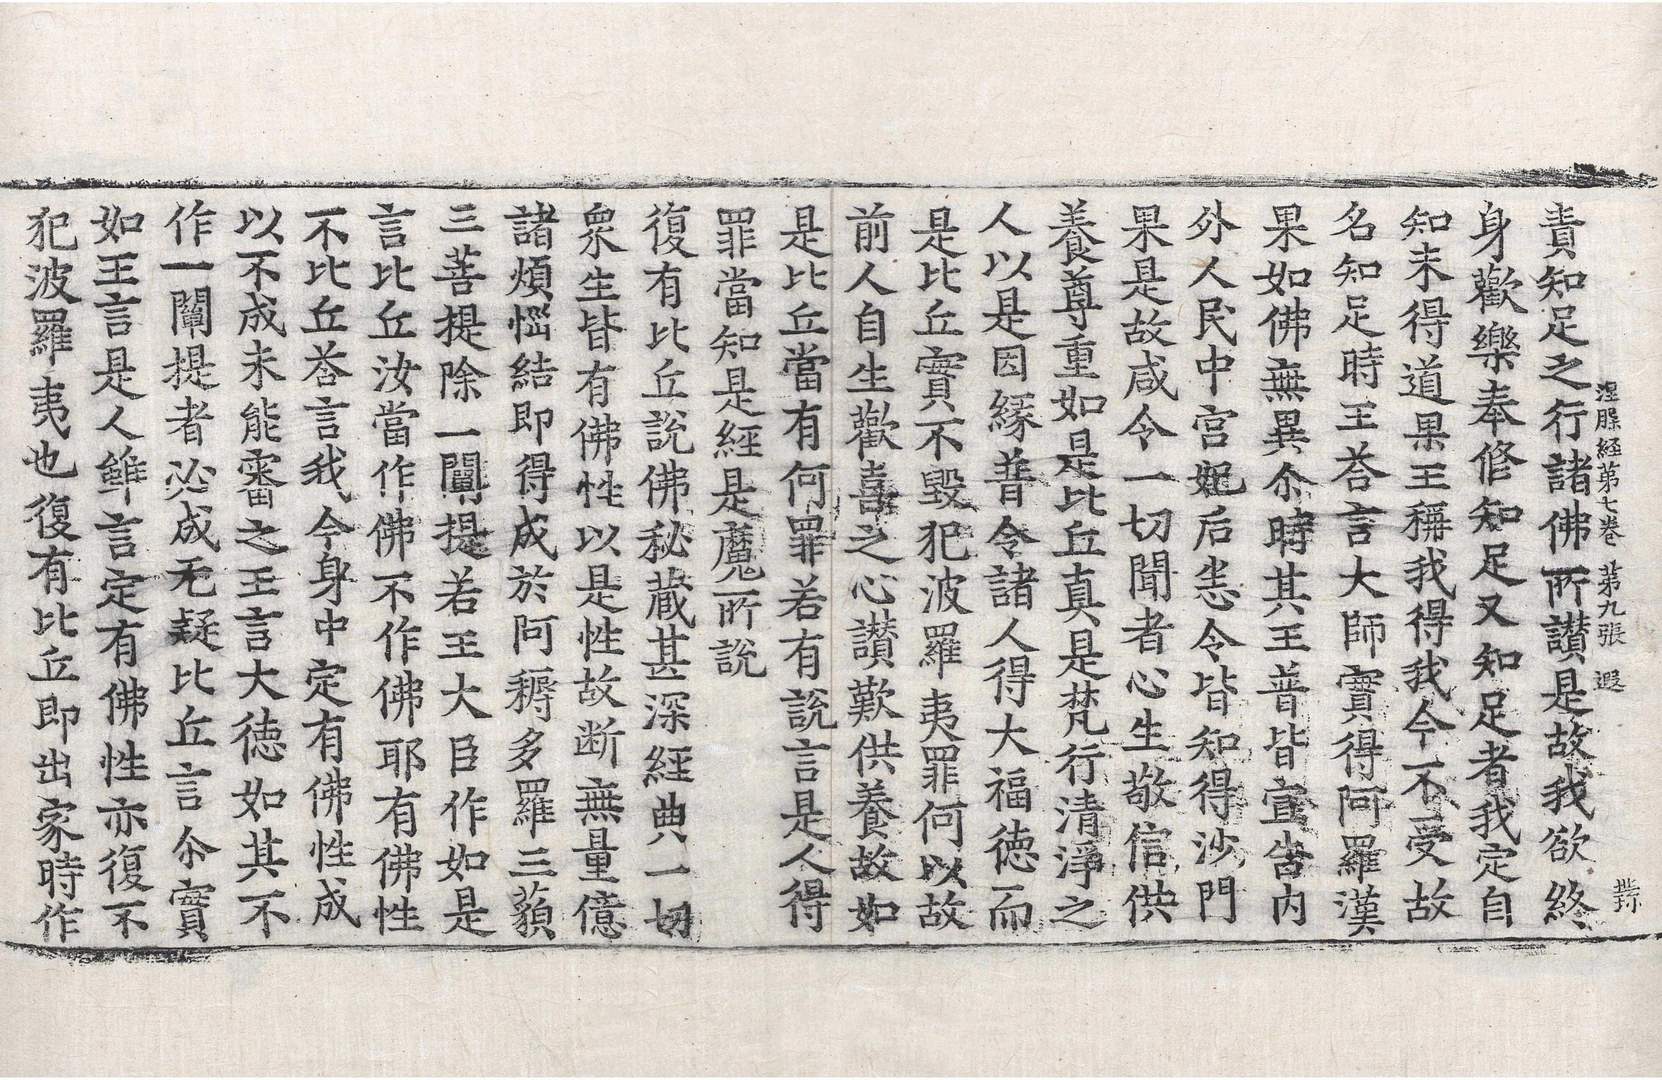 涅槃經第七卷 第九張 遐
責知足之行諸佛所讃是故我欲終
身歡樂奉修知足又知足者我定自
知未得道果王稱我得我今不受故
名知足時王荅言大師實得阿羅漢
果如佛無異尒時其王普皆宣告内
外人民中宫妃后悉令皆知得沙門
果是故咸令一切聞者心生敬信供
養尊重如是比丘真是梵行清淨之
人以是因緣普令諸人得大福徳而
是比丘實不毀犯波羅夷罪何以故
前人自生歡喜之心讃歎供養故如
是比丘當有何罪若有説言是人得
罪當知是經是魔所説
復有比丘説佛秘蔵甚深經典一切
衆生皆有佛性以是性故断無量億
諸煩惱結即得成於阿耨多羅三藐
三菩提除一闡提若王大臣作如是
言比丘汝當作佛不作佛耶有佛性
不比丘荅言我今身中定有佛性成
以不成未能審之王言大徳如其不
作一闡提者必成无疑比丘言尒實
如王言是人雖言定有佛性亦復不
犯波羅夷也復有比丘即出家時作